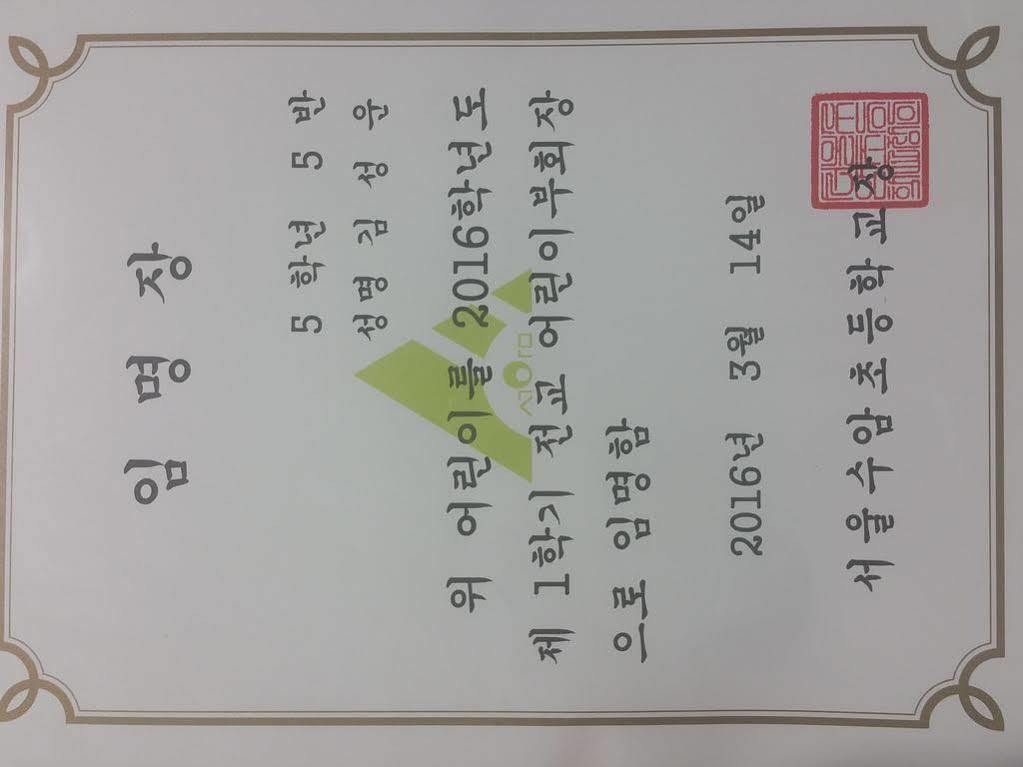 임 명 장
5 학년 5 반
성명 김 성 운
위 어린이를 2016학년도
제 1학기 전교 어린이부회장
으로 임명함
수암
2016년 3월 14일
서울수암초등학교장